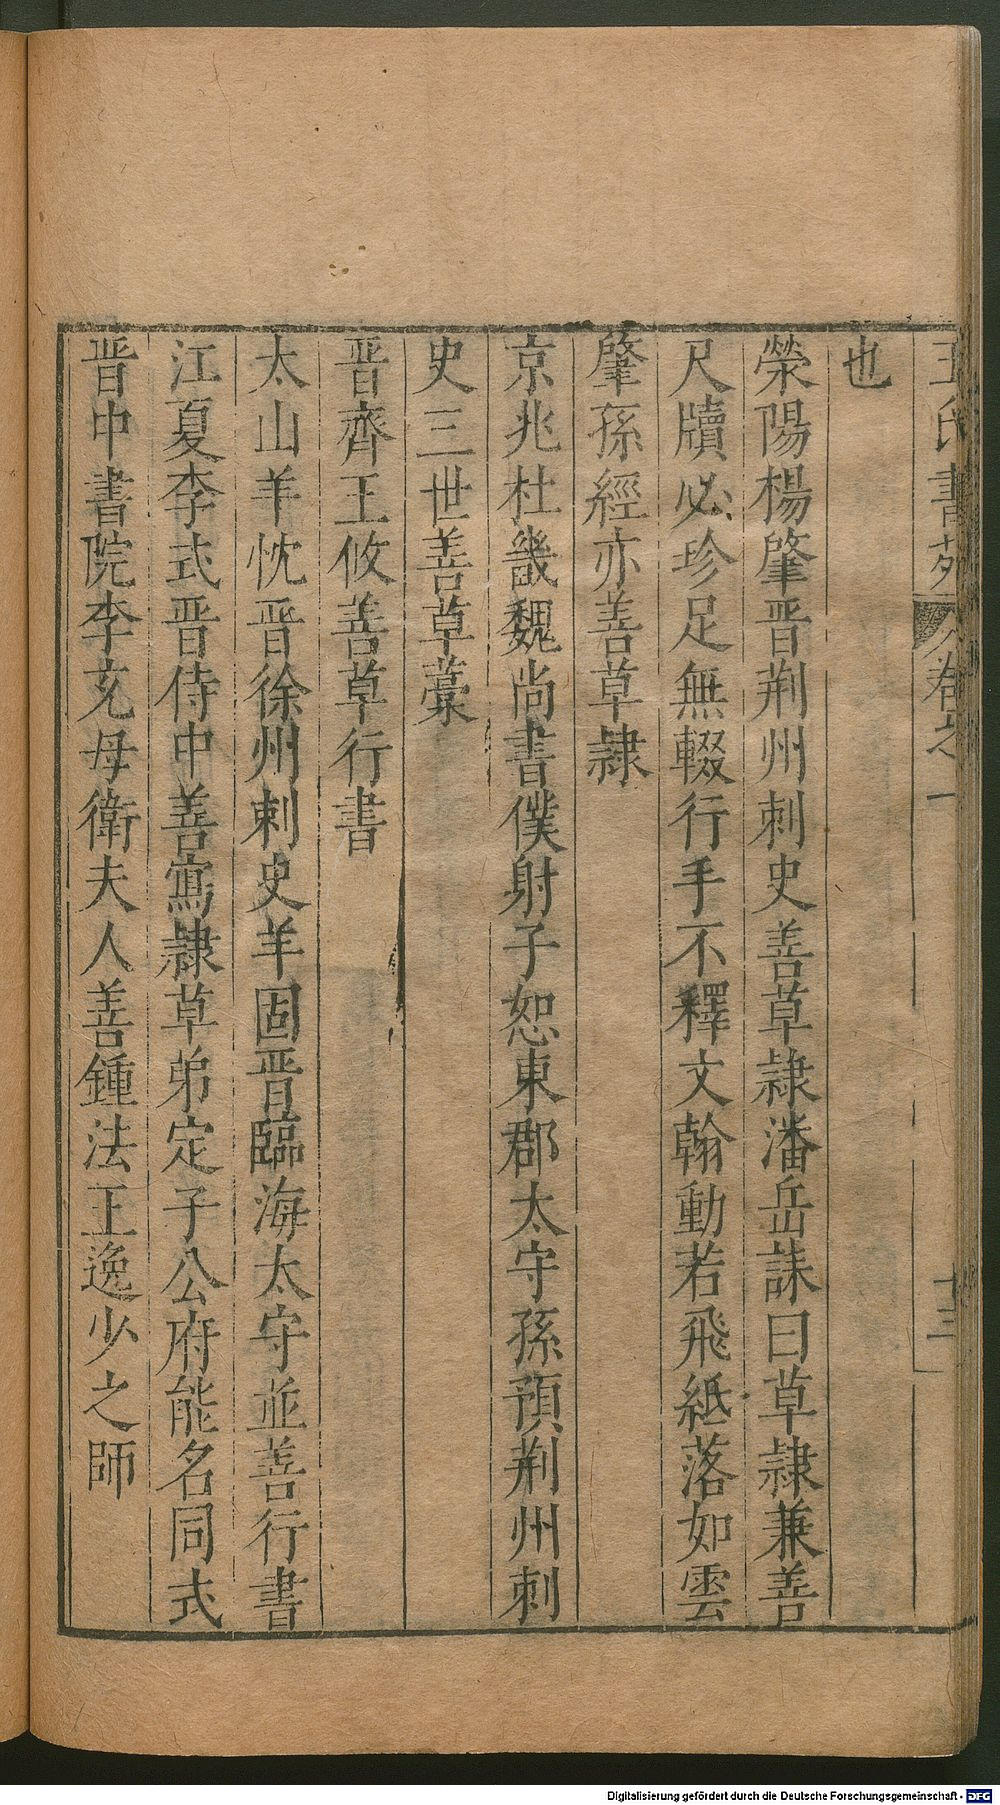 王氏書苑 卷之一 十三
也
滎陽楊肇晋荆州刺史善草隸潘岳誄曰草隸兼善
尺牘必珍足無輟行手不釋文翰動若飛紙落如雲
肇孫經亦善草隸
京兆杜畿魏尚書僕射子恕東郡太守孫預荆州刺
史三世善草藁
晋齊王攸善草行書
太山羊忱晋徐州刺史羊固晋臨海太守並善行書
江夏李式晋侍中善寫隸草弟定子公府能名同式
晋中書院李充母衛夫人善鍾法王逸少之師
Digitalisierung gefördert durch die Deutsche Forschungsgemeinschaft - DFG